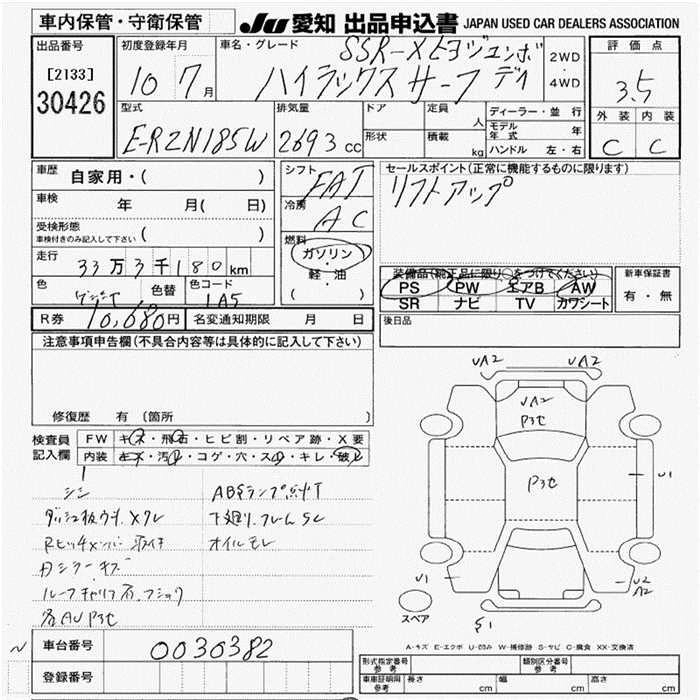 車内保管・守衛保管
JU 愛知 出品申込書 JAPAN USED CAR DEALERS ASSOCIATION
出品番号
[2133]
30426
初度登録年月
10 7月
車名・グレード
SSR-X
ハイラックス サーフ
2WD
・
4WD
評価点
3.5
外装 内装
C C
型式
E-RZN185W
排気量
2693 cc
ドア
定員
人
形状
積載
kg
ディーラー・並行
モデル年式 年
ハンドル 左・右
車歴
自家用・( )
車検
年 月( 日)
受検形態
車検付きのみ記入して下さい ( )
走行
33万3千180km
色
色替
色コード
1A5
シフト
FAT
冷房
AC
燃料
ガソリン
・
軽・油
( )
セールスポイント(正常に機能するものに限ります)
リフトアップ
装備品(純正品に限り○をつけてください)
PS PW エアB AW
SR ナビ TV カワシート
新車保証書
有・無
R券 10,680円
名変通知期限 月 日
後日品
注意事項申告欄(不具合内容等は具体的に記入して下さい)
修復歴 有(箇所 )
検査員記入欄
FW キズ・飛石・ヒビ割・リペア跡・X要
内装 キズ・汚れ・コゲ・穴・スレ・キレ・破レ
シミ
ABSランプ点灯
下廻り.フレームSC
オイルモレ
UA2
UA2
UA2
P3セ
P3セ
U1
U1
U2
A2
S1
スペア
A-キズ E-エクボ U-凹み W-補修跡 S-サビ C-腐食 XX-交換済
車台番号
0030382
登録番号
型式指定番号
参考
類別区分番号
参考
車車証明用
参考
長さ cm
幅 cm
高さ cm